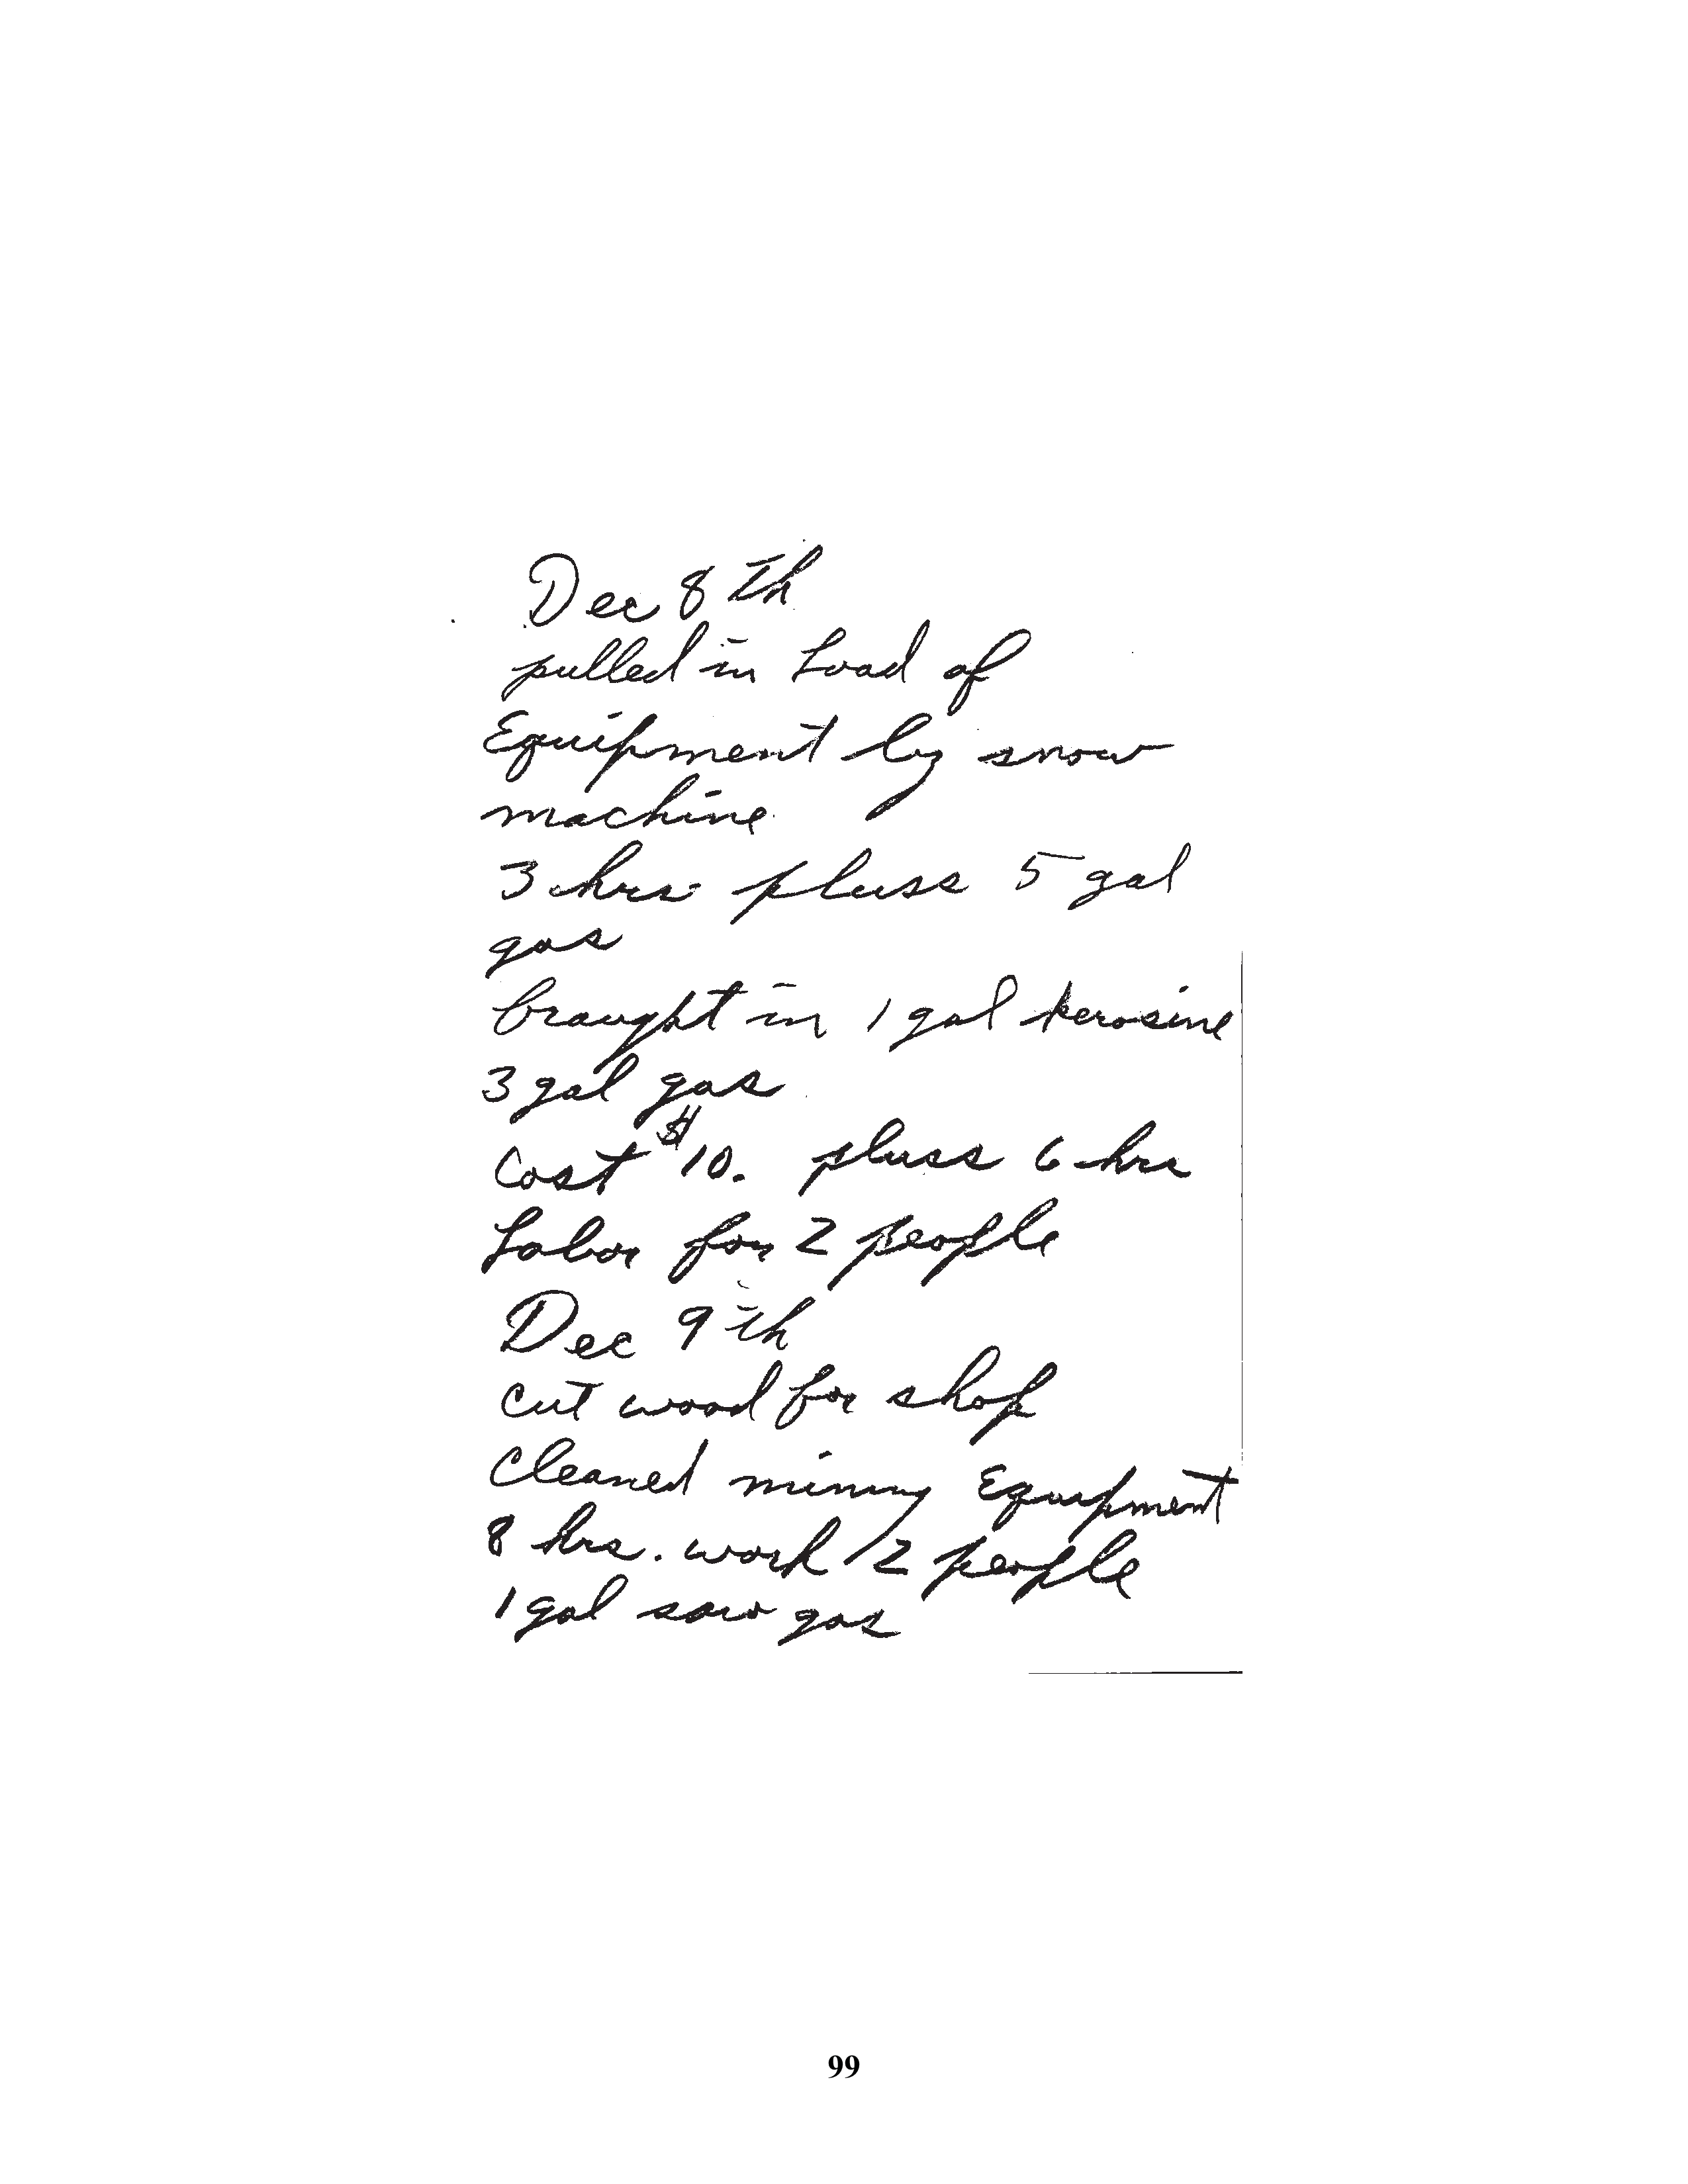 Dec 8th
pulled in Load of
Equipment by snow
machine
3 hrs pluss 5 gal
gas
braught in 1 gal kerosine
3 gal gas
Cost $10. pluss 6 hrs
Labor for 2 people
Dec 9th
cut wood for shop
Cleaned mining Equipment
8 hrs. work / 2 people
1 gal saw gas
99